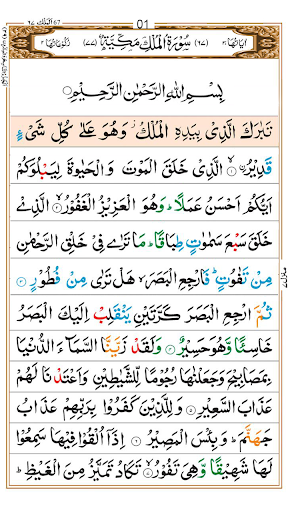 01
اٰيَاتُهَا ٣٠ (٦٧) سُوْرَةُ الْمُلْكِ مَكِّيَّةٌ (٧٧) رُكُوْعَاتُهَا ٢
بِسْمِ اللّٰهِ الرَّحْمٰنِ الرَّحِيْمِ
تَبٰرَكَ الَّذِىْ بِيَدِهِ الْمُلْكُ وَهُوَ عَلٰى كُلِّ شَىْءٍ
قَدِيْرُۨ ۙ الَّذِىْ خَلَقَ الْمَوْتَ وَالْحَيٰوةَ لِيَبْلُوَكُمْ
اَيُّكُمْ اَحْسَنُ عَمَلًا ؕ وَهُوَ الْعَزِيْزُ الْغَفُوْرُ ۙ الَّذِىْ
خَلَقَ سَبْعَ سَمٰوٰتٍ طِبَاقًا ؕ مَا تَرٰى فِىْ خَلْقِ الرَّحْمٰنِ
مِنْ تَفٰوُتٍ ؕ فَارْجِعِ الْبَصَرَ ۙ هَلْ تَرٰى مِنْ فُطُوْرٍ
ثُمَّ ارْجِعِ الْبَصَرَ كَرَّتَيْنِ يَنْقَلِبْ اِلَيْكَ الْبَصَرُ
خَاسِئًا وَّهُوَ حَسِيْرٌ وَلَقَدْ زَيَّنَّا السَّمَآءَ الدُّنْيَا
بِمَصَابِيْحَ وَجَعَلْنٰهَا رُجُوْمًا لِّلشَّيٰطِيْنِ وَاَعْتَدْنَا لَهُمْ
عَذَابَ السَّعِيْرِ وَلِلَّذِيْنَ كَفَرُوْا بِرَبِّهِمْ عَذَابُ
جَهَنَّمَ ؕ وَبِئْسَ الْمَصِيْرُ اِذَاۤ اُلْقُوْا فِيْهَا سَمِعُوْا
لَهَا شَهِيْقًا وَّهِىَ تَفُوْرُ ۙ تَكَادُ تَمَيَّزُ مِنَ الْغَيْظِ ؕ